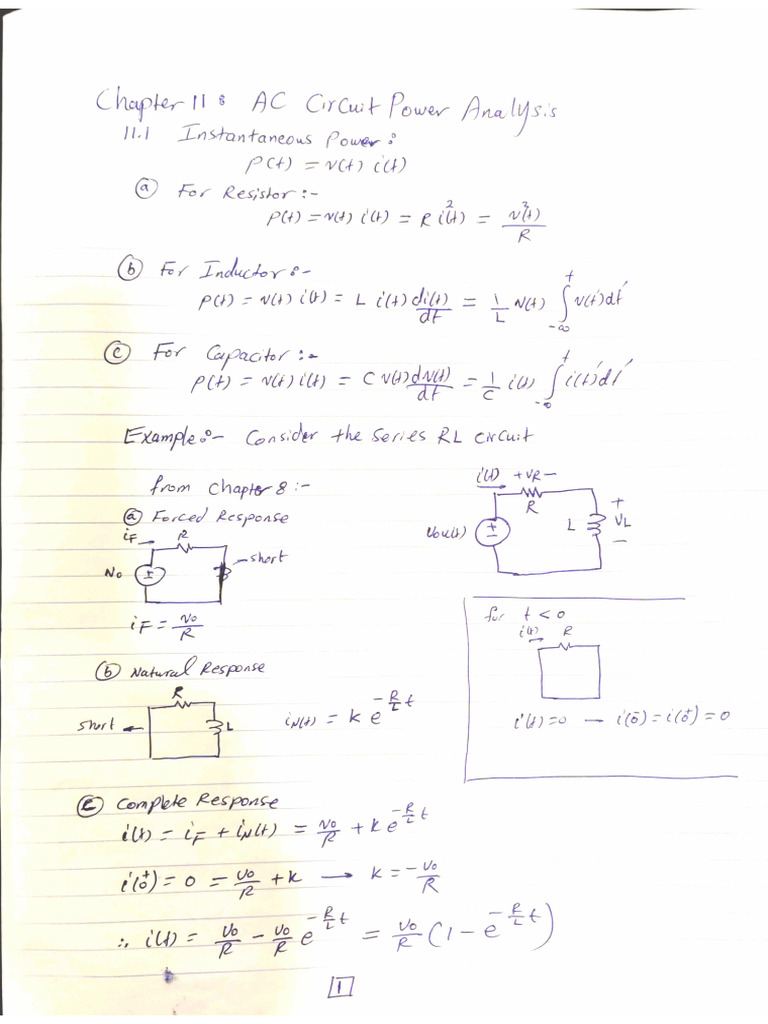 Chapter 11: AC Circuit Power Analysis
11.1 Instantaneous Power:
P(t) = v(t) i(t)
(a) For Resistor :-
P(t) = v(t) i(t) = R i²(t) = v²(t)/R
(b) For Inductor :-
P(t) = v(t) i(t) = L i(t) di(t)/dt = 1/L v(t) ∫_{-∞}^{t} v(t')dt'
(c) For Capacitor :-
P(t) = v(t) i(t) = C v(t) dv(t)/dt = 1/C i(t) ∫_{-∞}^{t} i(t')dt'
Example :- Consider the series RL circuit
from Chapter 8 :-
i(t) + VR -
R
Vou(t)
+ -
L
+
VL
-
(a) Forced Response
iF R
vo
+ -
short
iF = vo/R
for t < 0
i(t) R
i(t)=0 → i(0⁻) = i(0⁺) = 0
(b) Natural Response
R
short
L
iN(t) = k e^{-R/L t}
(c) Complete Response
i(t) = iF + iN(t) = vo/R + k e^{-R/L t}
i(0⁺) = 0 = vo/R + k → k = -vo/R
∴ i(t) = vo/R - vo/R e^{-R/L t} = vo/R (1 - e^{-R/L t})
1